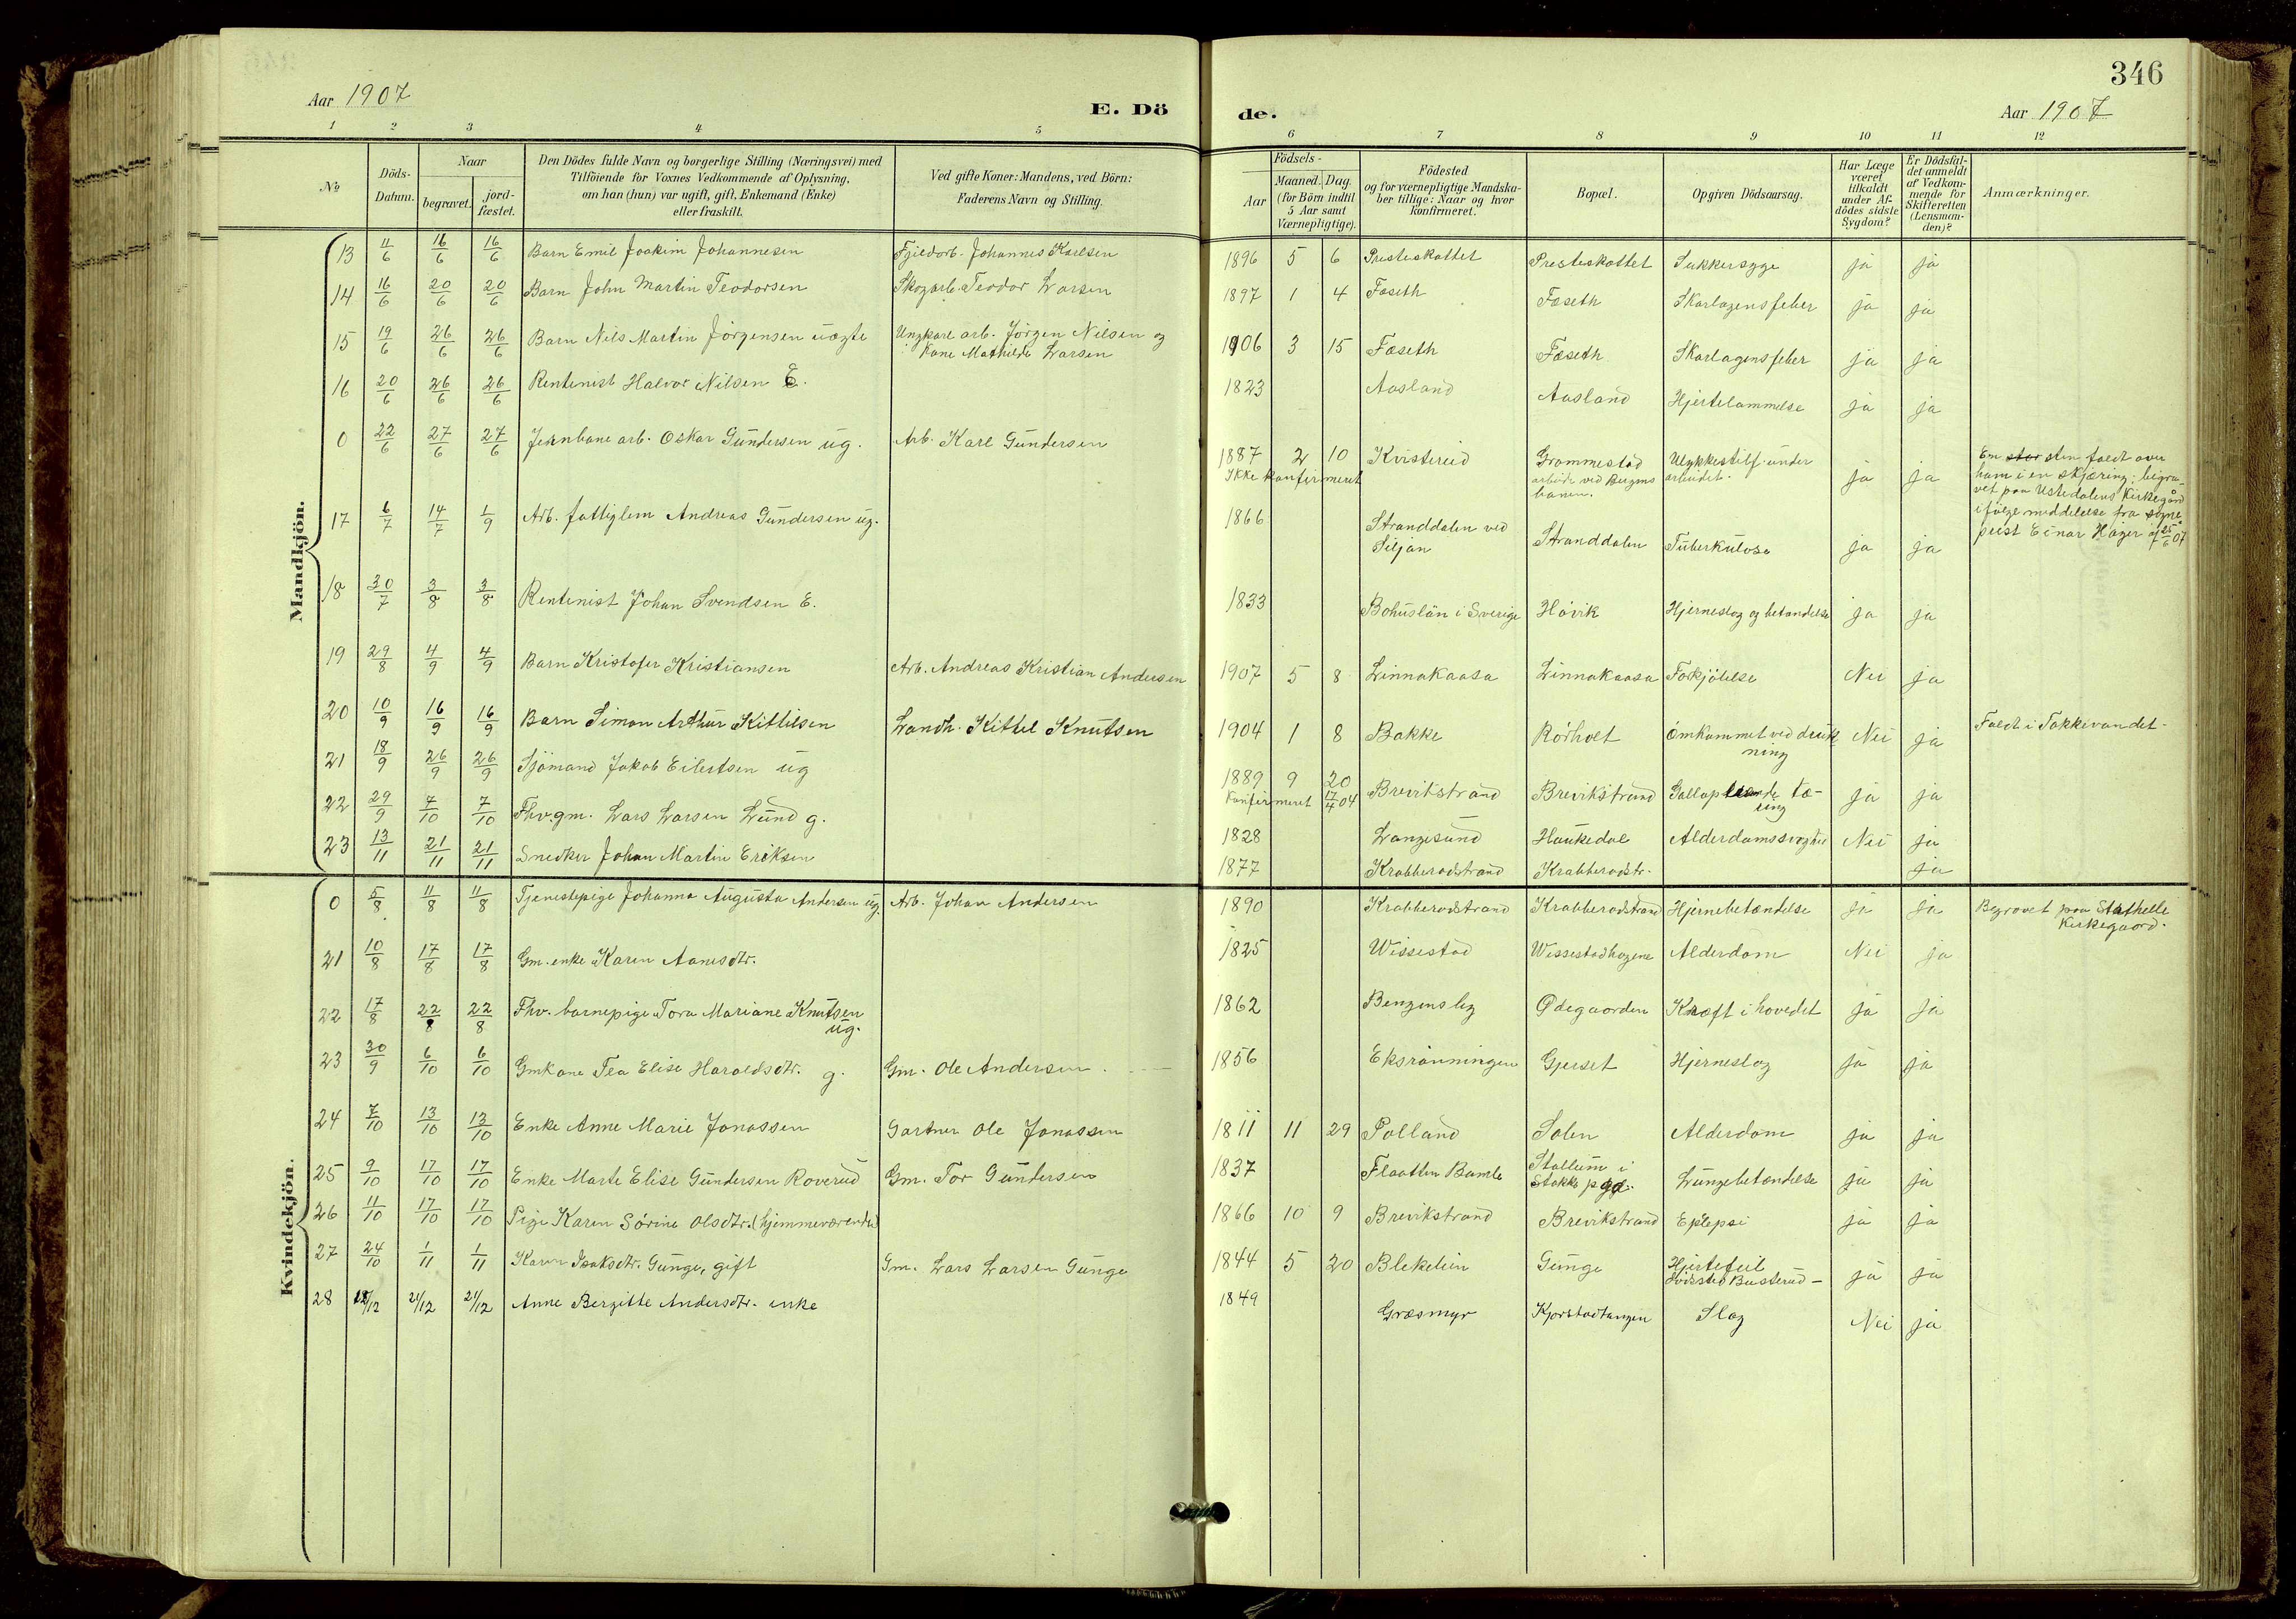 346
Aar 1907
E. Dö
de.
Aar 1907
1 2 3 4 5 6 7 8 9 10 11 12
No
Döds-Datum.
Naar
begravet.
jord-fæstet.
Den Dödes fulde Navn og borgerlige Stilling (Næringsvei) med
Tilföiende for Voxnes Vedkommende af Oplysning,
om han (hun) var ugift, gift, Enkemand (Enke)
eller fraskilt.
Ved gifte Koner: Mandens, ved Börn:
Faderens Navn og Stilling.
Födsels-
Aar
Maaned. Dag.
(for Börn indtil
5 Aar samt
Værnepligtige).
Födested
og for værnepligtige Mandska-
ber tillige: Naar og hvor
konfirmeret.
Bopæl.
Opgiven Dödsaarsag.
Har Læge
været
tilkaldt
under Af-
dödes sidste
Sygdom?
Er Dödsfal-
det anmeldt
af Vedkom-
mende for
Skifteretten
(Lensman-
den)?
Anmærkninger.
Mandkjön.
13 11/6 16/6 16/6 Barn Emil Joakim Johannesen Fjeldarb. Johannes Karlsen 1896 5 6 Presteskattet Presteskattet Sukkersyge ja ja
14 16/6 20/6 20/6 Barn John Martin Teodorsen Skogarb. Teodor Larsen 1897 1 4 Fæseth Fæseth Skarlagensfeber ja ja
15 19/6 26/6 26/6 Barn Nils Martin Jörgensen uægte Ungkarl arb. Jörgen Nilsen og 1906 3 15 Fæseth Fæseth Skarlagensfeber ja ja
Kone Mathilde Larsen
16 20/6 26/6 26/6 Rentenist Halvor Nilsen E. 1823 Aasland Aasland Hjertelammelse ja ja
0 22/6 27/6 27/6 Jernbane arb. Oskar Gundersen ug. Arb. Karl Gundersen 1887 2 10 Kvistereid Grommestad Ulykkestilf. under ja ja
Ikke konfirmeret
arbeide ved Bergens arbeidet.
banen.
En stor sten faldt over
ham i en skjæring; begra-
vet paa Ustedalens Kirkegård
ifølge meddelelse fra sogne
prest Einar Høyer af 25/6 07
17 6/7 14/7 1/9 Arb. fattiglem Andreas Gundersen ug. 1866 Stranddalen ved
Siljan Stranddalen Tuberkulose ja ja
18 30/7 3/8 3/8 Rentenist Johan Svendsen E. 1833 Bohuslän i Sverige Håvik Hjerneslag og betændelse ja ja
19 29/8 4/9 4/9 Barn Kristofer Kristiansen Arb. Andreas Kristian Andersen 1907 5 8 Linnakaasa Linnakaasa Forkjölelse Nei ja
20 10/9 16/9 16/9 Barn Simon Arthur Kittilsen Landh. Kittel Knutsen 1904 1 8 Bakke Rörholt Omkommet ved druk Nei ja Faldt i Tokkevandet.
ning
21 18/9 26/9 26/9 Sjömand Jakob Eilertsen ug 1889 9 20 Brevikstrand Brevikstrand Galloperende tæ- ja ja
Konfirmeret 17/4 04
ring
22 29/9 7/10 7/10 Fhv. gm. Lars Larsen Lund g. 1828 Langesund Haukedal Alderdomssvaghed Nei ja
23 13/11 21/11 21/11 Snedker Johan Martin Eriksen 1877 Krabberødstrand Krabberødstr. ja
Kvindekjön.
0 5/8 11/8 11/8 Tjenestepige Johanna Augusta Andersen ug. Arb. Johan Andersen 1890 Krabberødstrand Krabberødstrand Hjernebetændelse ja ja Begravet paa Stathelle
Kirkegaard.
21 10/8 17/8 17/8 Gm. enke Karen Aanesdtr. 1825 Wissestad Wissestadhagene Alderdom Nei ja
22 17/8 22/8 22/8 Fhv. barnepige Tora Mariane Knutsen 1862 Ødegaarden Kræft i hovedet ja ja
ug.
23 30/9 6/10 6/10 Gmkone Tea Elise Haraldsdtr. g. Gm. Ole Andersen 1856 Eksrönningen Gjerset Hjerneslag ja ja
24 7/10 13/10 13/10 Enke Anne Marie Jonassen Gartner Ole Jonassen 1811 11 29 Polland Salen Alderdom ja ja
25 9/10 17/10 17/10 Enke Marte Elise Gundersen Roverud Gm. Tor Gundersen 1837 Flaatten Bamle Stallum i
Stokke pgd. Lungebetændelse ja ja
26 11/10 17/10 17/10 Pige Karen Sörine Olsdtr. (hjemmeværende) 1866 10 9 Brevikstrand Brevikstrand Eplepsi ja ja
27 24/10 1/11 1/11 Karen Isaksdtr. Gunge, gift Gm. Lars Larsen Gunge 1844 5 20 Blekelien Gunge Hjertefeil
Dödssted Busterud - ja ja
28 /12 21/12 21/12 Anne Bergitte Andersdtr. enke 1849 Græsmyr Kjørstadtangen Slag Nei ja